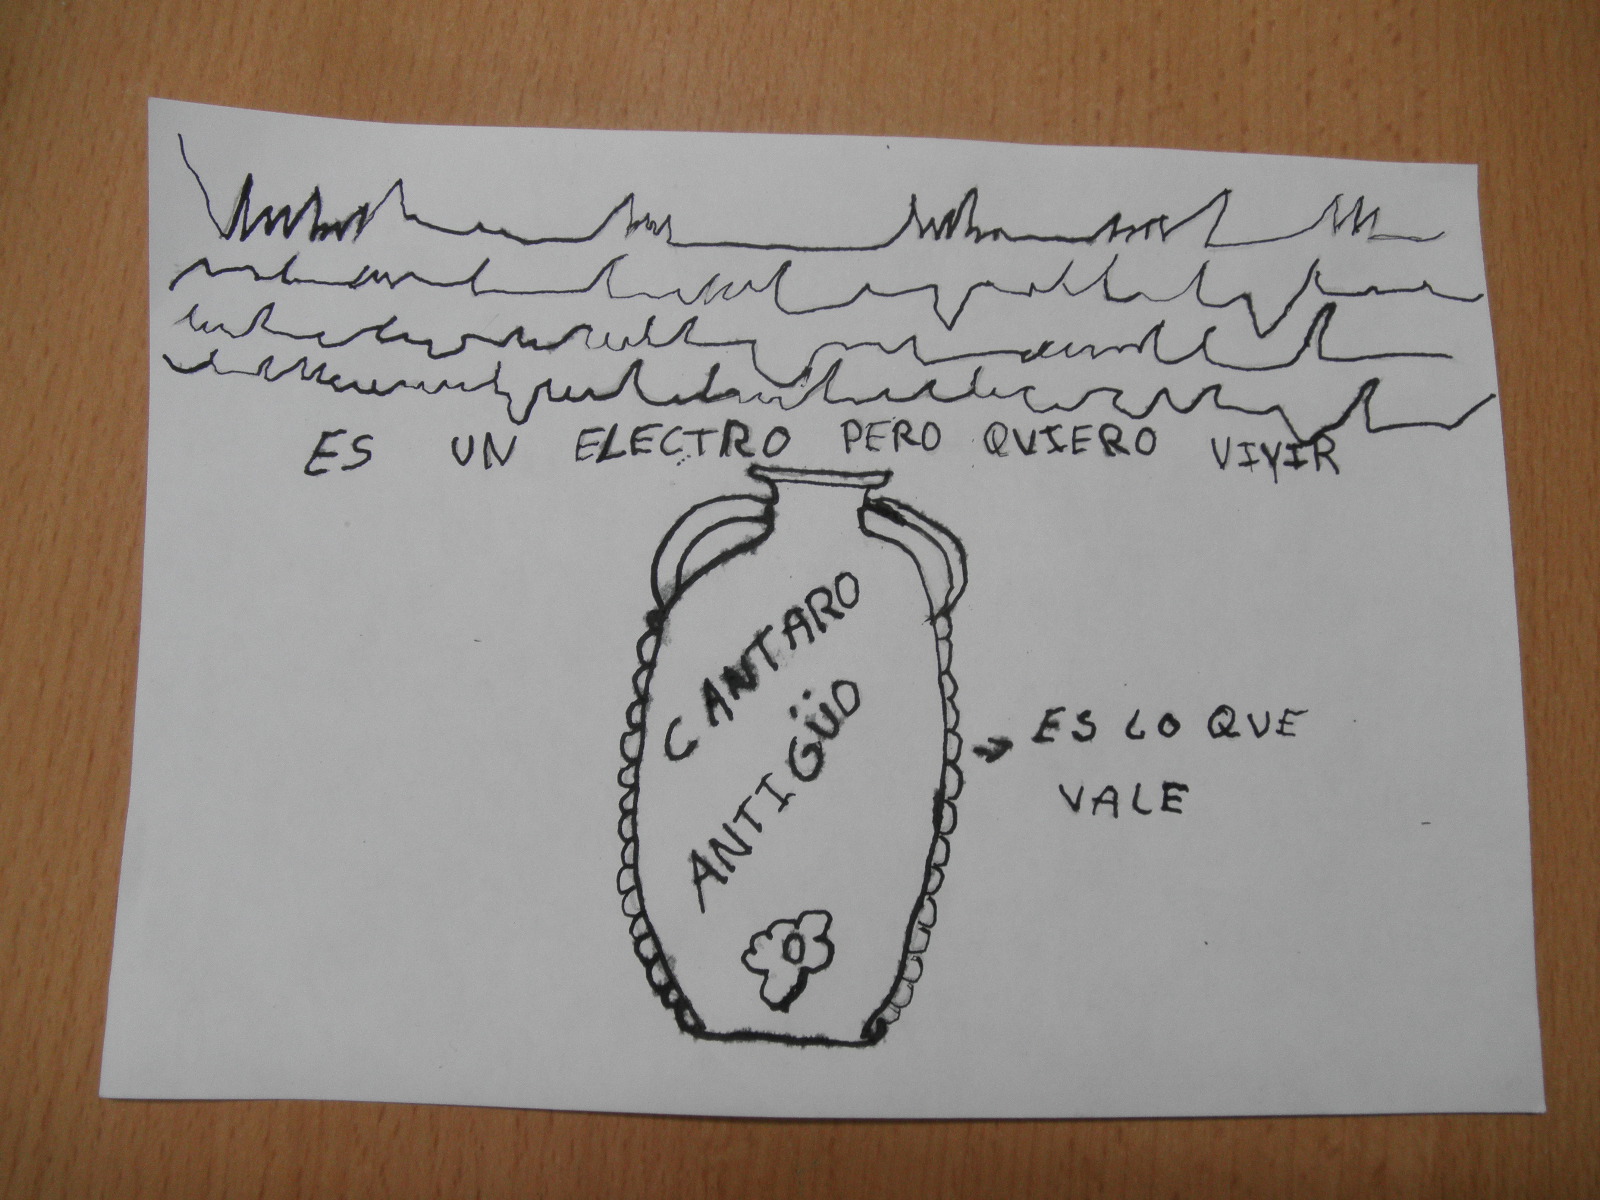 ES UN ELECTRO PERO QUIERO VIVIR
CANTARO
ANTIGÜO
ES LO QUE
VALE